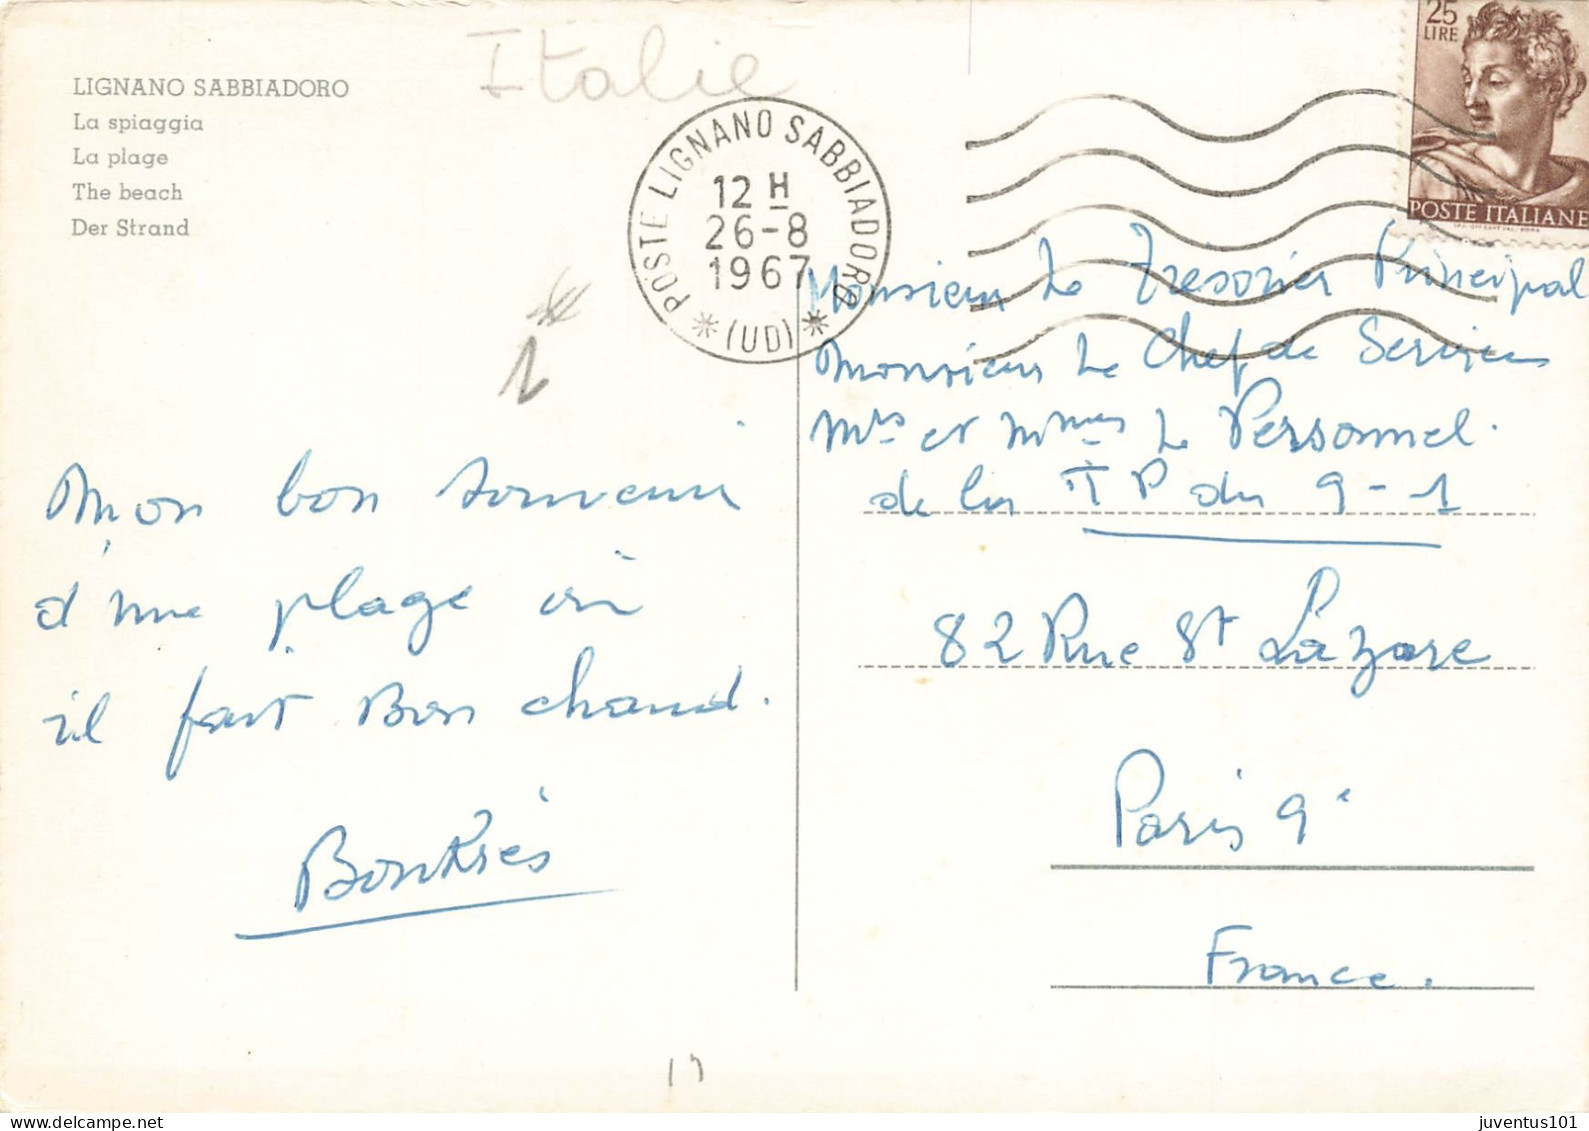 Italie
LIGNANO SABBIADORO
La spiaggia
La plage
The beach
Der Strand
POSTE LIGNANO SABBIADORO
12 H
26-8
1967
(UD)
25
LIRE
POSTE ITALIANE
1
Mon bon souvenir
d'une plage où
il fait Bon chaud.
Monsieur Le Tresorier Principal
Monsieur Le Chef de Services
Mrs et Mmes Le Personnel.
de la TP du 9-1
82 Rue St Lazare
Paris 9e
France.
juventus101